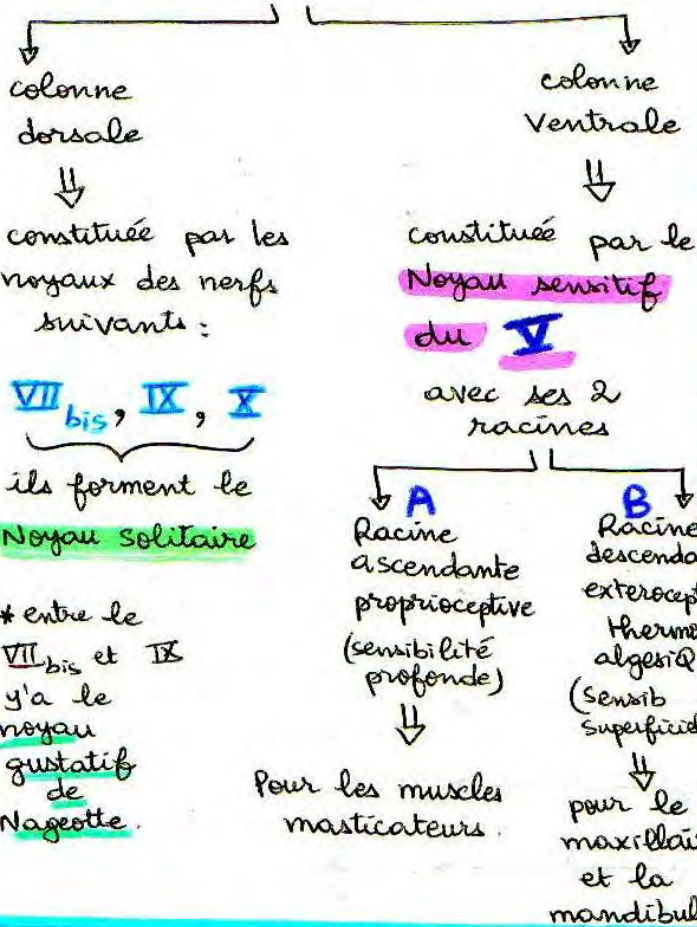 colonne
dorsale
⇓
constituée par les
noyaux des nerfs
suivants :
VII bis, IX, X
ils forment le
Noyau Solitaire
* entre le
VII bis et IX
y'a le
noyau
gustatif
de
Nageotte.
colonne
Ventrale
⇓
constituée par le
Noyau sensitif
du V
avec ses 2
racines
A
Racine
ascendante
proprioceptive
(sensibilité
profonde)
⇓
Pour les muscles
masticateurs.
B
Racine
descenda
exterocept
thermo
algesiQ
(Sensib
Superficie
⇓
pour le
maxillai
et la
mandibul